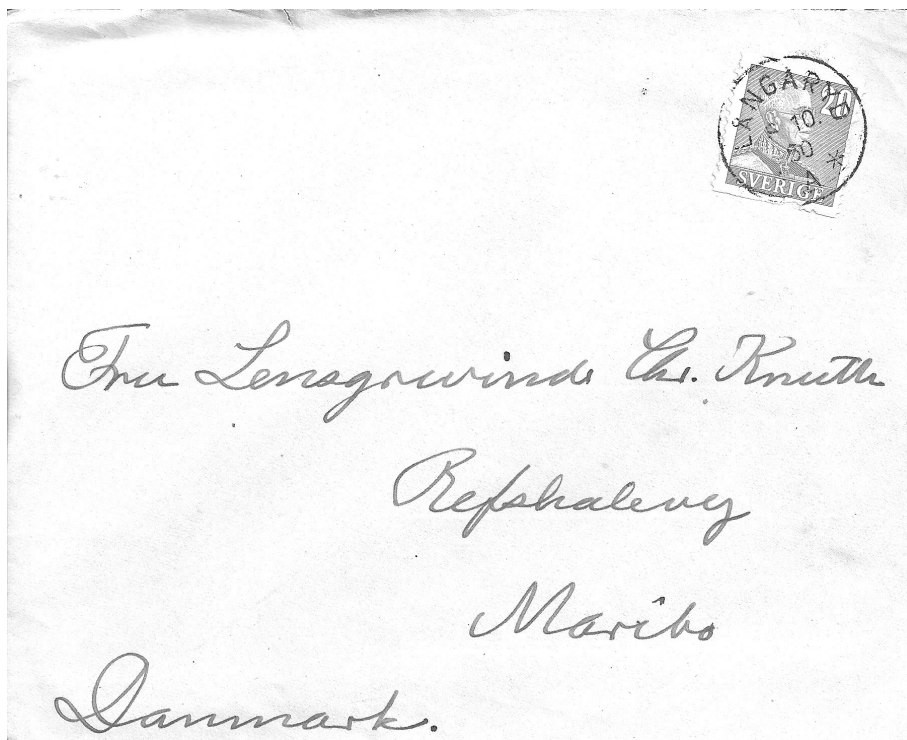 LÅNGARYD
20
10.
50
SVERIGE
Fru Lensgrevinde Chr. Knuth
Refshalevej
Maribo
Danmark.